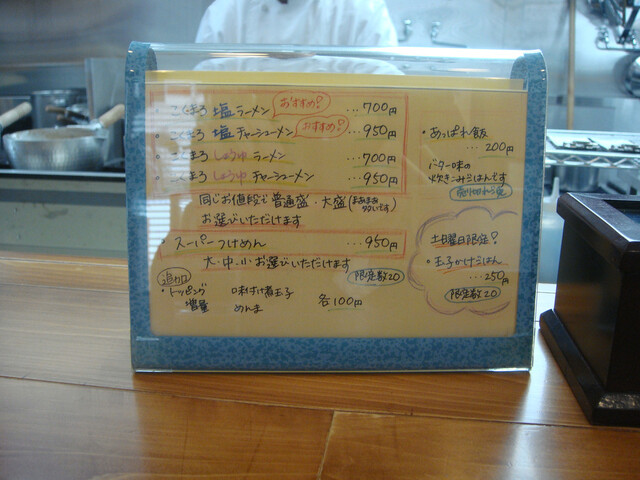 ・こくまろ 塩ラーメン おすすめ! ・・・700円
・こくまろ 塩チャーシューメン おすすめ! ・・・950円
・こくまろ しょうゆ ラーメン ・・・700円
・こくまろ しょうゆ チャーシューメン ・・・950円
同じお値段で普通盛・大盛
お選びいただけます
・スーパーつけめん ・・・950円
大・中・小お選びいただけます 限定数20
追加
・トッピング 味付け煮玉子 各100円
増量 めんま
・あっぱれ飯
・・・200円
バター味の
炊きこみごはんです
売り切れつ定
土曜日限定!
・玉子かけごはん
・・・250円
限定数20